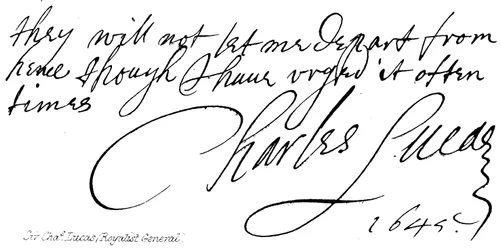 they will not let me Depart from
hence though I haue vrged it often
times
Charles Lucas
1645.
Sir Chaˢ. Lucas (Royalist General)